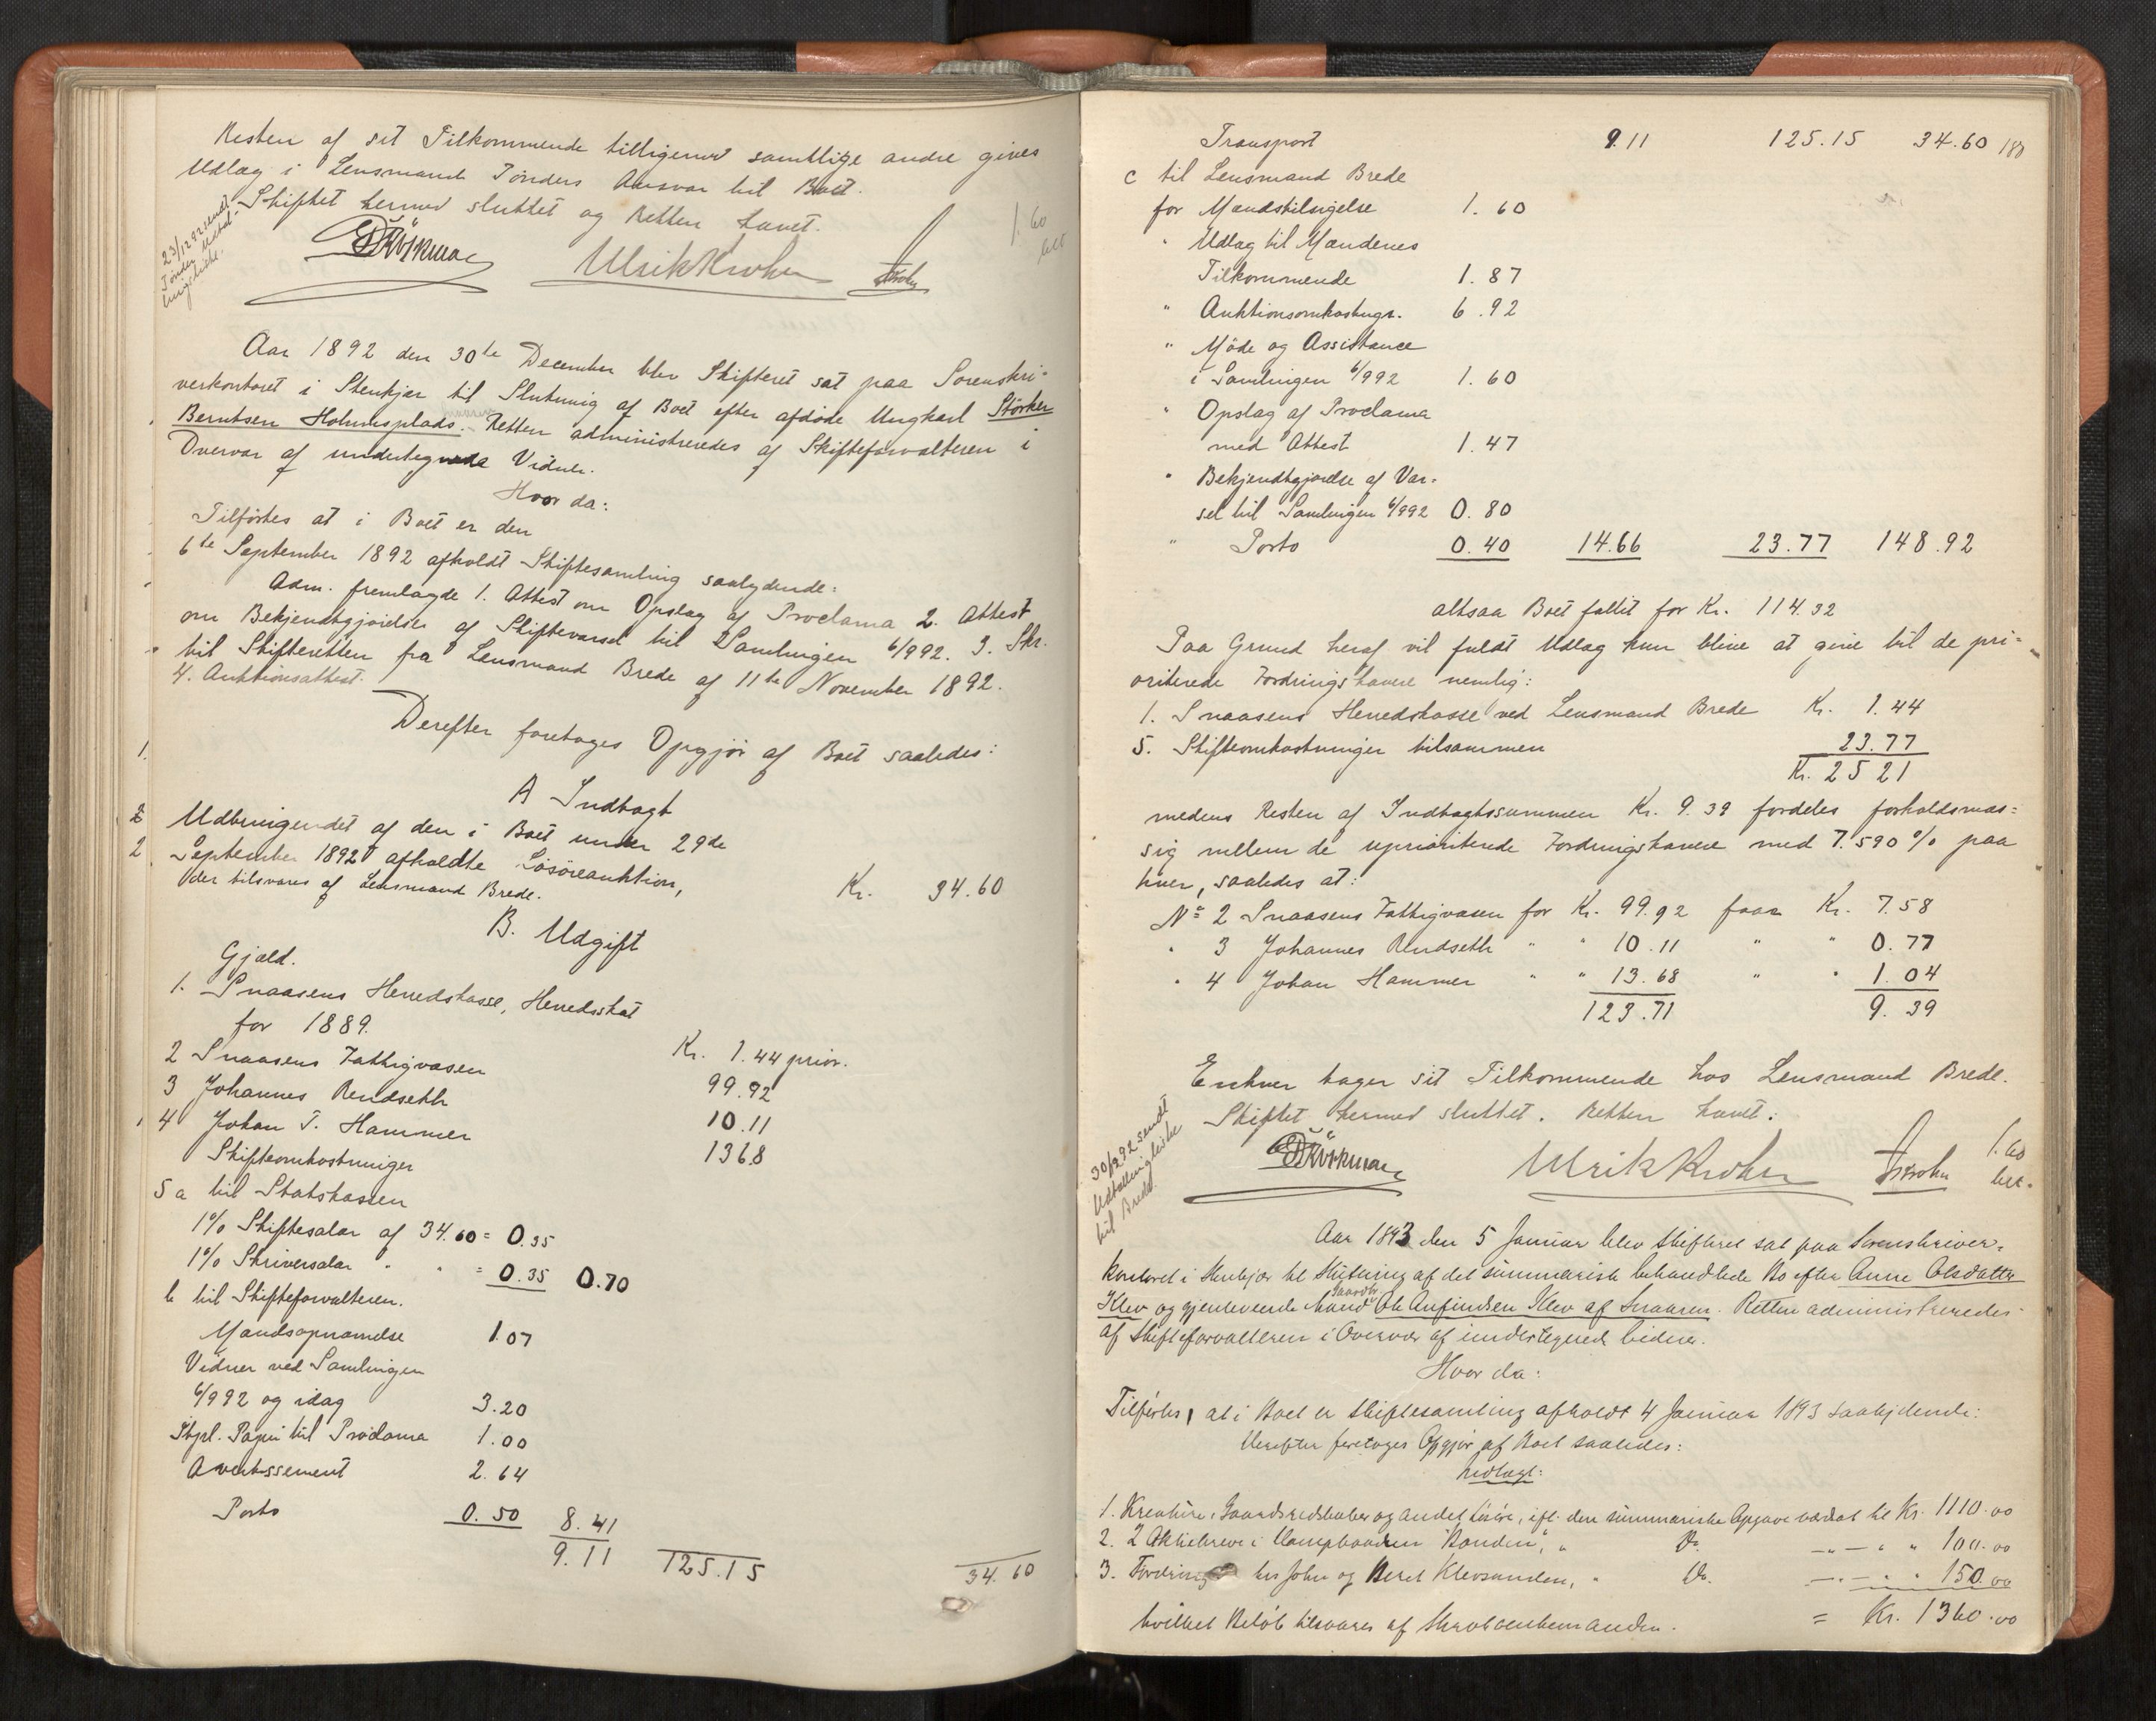 Resten af sit Tilkommende tilligemed samtlige andre gives
Udlæg i Lensmand Tönders Ansvar til Boet.
Skiftet hermed sluttet og Retten hævet.
23/12 92 sendt
Tönder Udbetal-
lingsliste.
1.60
bet
Ulrik Krohn
Krohn
Aar 1892 den 30te December blev Skifteret sat paa Sorenskri-
verkontoret i Stenkjær til Slutning af Boet efter afdöde Ungkarl Störker
Berntsen Holmsplads. Retten administreredes af Skifteforvalteren i
Overvær af undertegnede Vidner.
Hvor da:
Tilförtes at i Boet er den
6te September 1892 afholdt Skiftesamling saalydende:
Adm. fremlagde 1. Attest om Opslag af Proclama 2. Attest
om Bekjendtgjörelse af Skiftevarsel til Samlingen 6/9 92. 3. Skr.
til Skifteretten fra Lensmand Brede af 11te November 1892.
4. Auktionsattest.
Derefter foretoges Opgjör af Boet saaledes:
1.
A Indtægt
2 Udbringendet af den i Boet under 29de
2 September 1892 afholdte Lösöreauktion,
der tilsvares af Lensmand Brede. Kr. 34.60
B. Udgift
Gjæld.
1. Snaasens Herredskasse, Herredsskat
for 1889. Kr. 1.44 prior.
2 Snaasens Fattigvæsen 99.92
3 Johannes Rendseth 10.11
4 Johan T. Hammer 13.68
Skifteomkostninger
5 a til Statskassen
1% Skiftesalær af 34.60 = 0.35
1% Skriversalær " " = 0.35 0.70
b til Skifteforvalteren.
Mandsopnævnelse 1.07
Vidner ved Samlingen
6/9 92 og idag 3.20
Stpl. Papir til Proclama 1.00
Avertissement 2.64
Porto 0.50 8.41
9.11 125.15 34.60
Transport 9.11 125.15 34.60 188
c til Lensmand Brede
for Mandstilsigelse 1.60
" Udlæg til Mændenes
Tilkommende 1.87
" Auktionsomkostngr. 6.92
" Möde og Assistance
i Samlingen 6/9 92 1.60
" Opslag af Proclama
med Attest 1.47
" Bekjendtgjörelse af Var-
sel til Samlingen 6/9 92 0.80
" Porto 0.40 14.66 23.77 148.92
altsaa Boet fallit for Kr. 114.32
Paa Grund heraf vil fuldt Udlæg kun blive at give til de pri-
oriterede Fordringshavere nemlig:
1. Snaasens Herredskasse ved Lensmand Brede Kr. 1.44
5. Skifteomkostninger tilsammen 23.77
Kr. 25 21
medens Resten af Indtægtssummen Kr. 9.39 fordeles forholdsmæs-
sig mellem de uprioriterede Fordringshavere med 7.590 % paa
hver, saaledes at:
No 2 Snaasens Fattigvæsen for Kr. 99.92 faar Kr. 7.58
" 3 Johannes Rendseth " " 10.11 " " 0.77
" 4 Johan Hammer " " 13.68 " " 1.04
123.71 9.39
Enhver tager sit Tilkommende hos Lensmand Brede.
Skiftet hermed sluttet. Retten hævet.
30/12 92 sendt
Udbetalingsliste
til Brede
Ulrik Krohn
Krohn
1.60
bet.
Aar 1893 den 5 Januar blev Skifteret sat paa Sorenskriver-
kontoret i Stenkjær til Slutning af det summariske behandlede Bo efter Anne Olsdatter
Klev og gjenlevende Mand Gaardbr Ole Anfindsen Klev af Snaasen. Retten administreredes
af Skifteforvalteren i Overvær af undertegned Vidner.
Hvor da:
Tilförtes, at i Boet er Skiftesamling afholdt 4 Januar 1893 saalydende:
Derefter foretoges Opgjör af Boet saaledes:
Indtægt:
1. Kreature, Gaardsredskaber og andet Lösöre, ifl. den summariske Opgave værdsat til Kr. 1110.00
2. 2 Aktiebreve i Dampbaaden "Bonden", " Do. " " 100.00
3. Fordring hos John og Beret Klevsanden, " Do. " " 150.00
hvilket Belöb tilsvares af Sterbo enkemanden. = Kr. 1360.00